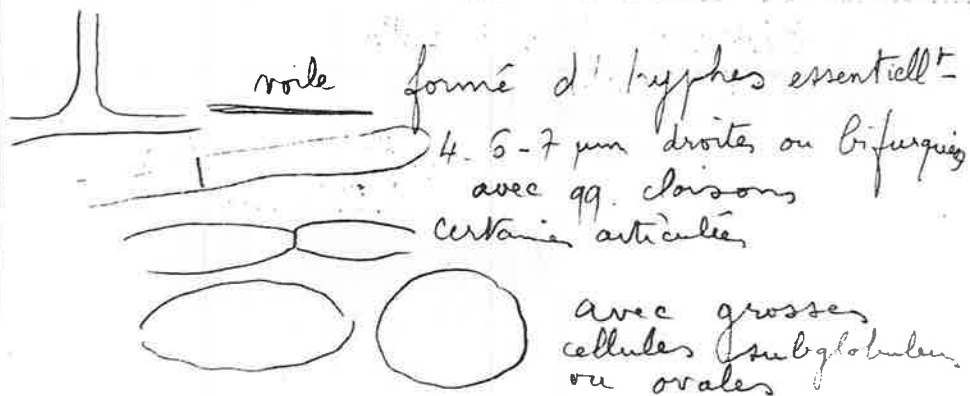 voile formé d'hyphes essentiellt-
4. 6-7 µm droites ou bifurquées
avec qq. cloisons
certaines articulées
avec grosses
cellules subglobuleuses
ou ovales